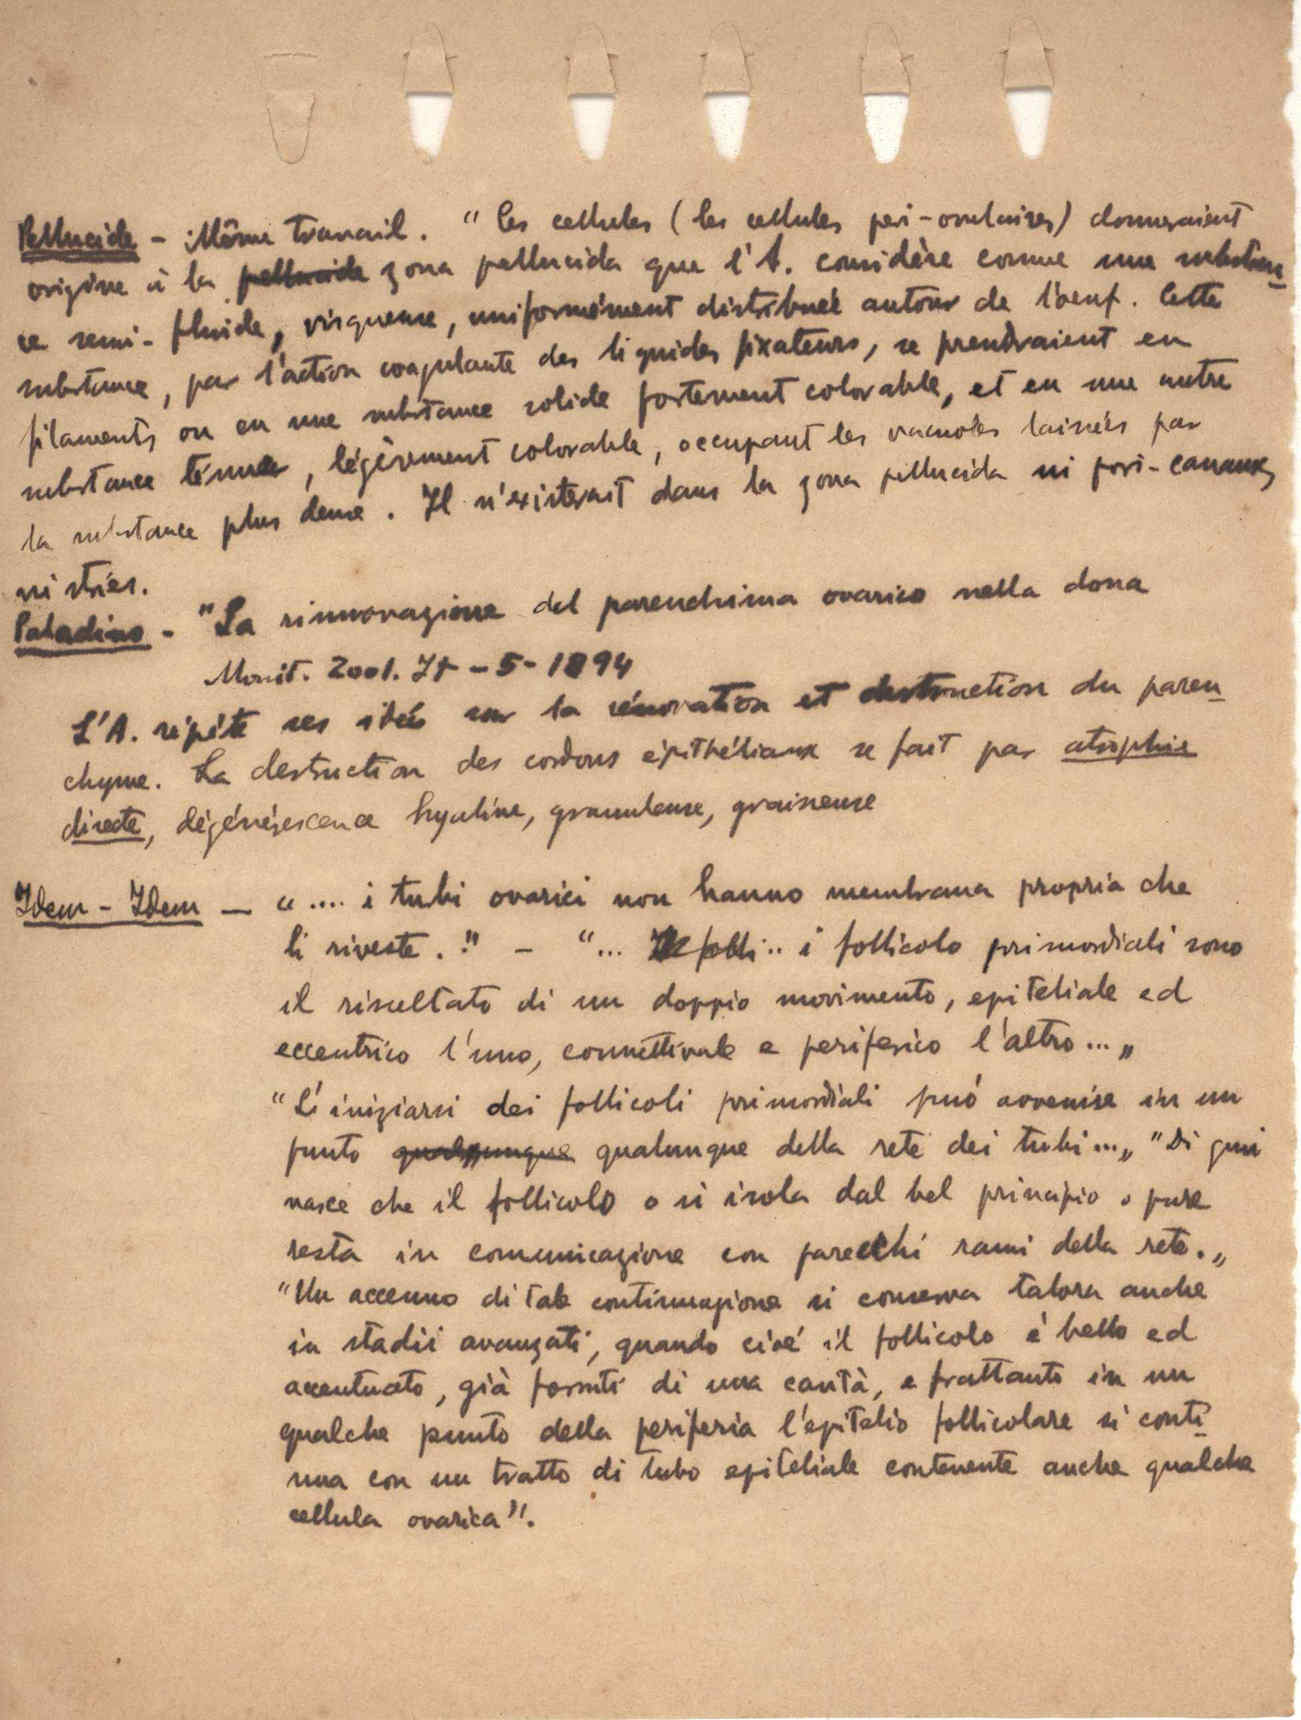 Pellucide - Même travail. “ Les cellules (les cellules peri-ovulaires) donneraient
origine à la pellucide zona pellucida que l'A. considère comme une substan
ce semi-fluide, visqueuse, uniformément distribuée autour de l'oeuf. Cette
substance, par l'action coagulante des liquides fixateurs, se prendraient en
filaments ou en une substance solide fortement colorable, et en une autre
substance ténue, légèrement colorable, occupant les vacuoles laissées par
la substance plus dense. Il n'existerait dans la zona pellucida ni pori-canaux,
ni stries.
Paladino - "La rinnovazione del parenchima ovarico nella dona
Monit. Zool. It - 5 - 1894
L'A. répéte ses idées sur la rénovation et destruction du paren
chyme. La destruction des cordons épithéliaux se fait par atrophie
directe, dégénérescence hyaline, granuleuse, graisseuse
Idem - Idem — “.... i tubi ovarici non hanno membrana propria che
li riveste." - “... Il folli.. i follicolo primordiali sono
il riscultato di un doppio movimento, epiteliale ed
eccentrico l'uno, connettivale e periferico l'altro...„
“L'iniziarsi dei follicoli primordiali puó avvenire in un
punto qualpunque qualunque della rete dei tubi...„ "Di guisi
nasce che il follicolo o si isola dal bel principio o pure
resta in comunicazione con parecchi rami della rete.„
“Un accenno di tale continuazione si conserva talora anche
in stadii avanzati, quando cioé il follicolo é bello ed
accentuato, già forniti di una cavità, e frattanto in un
qualche punto della periferia l'epitelio follicolare si conti
nua con un tratto di tubo epiteliale contenente anche qualche
cellula ovarica".